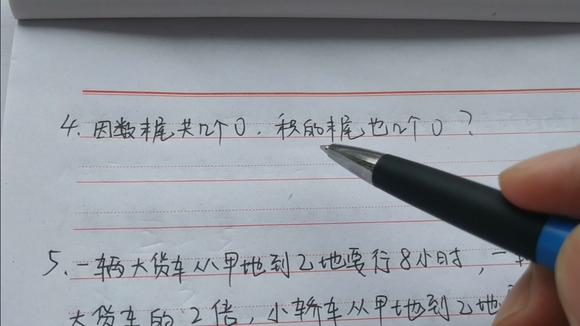 4. 因数末尾共几个0，积的末尾也几个0？
5. 一辆大货车从甲地到乙地要行8小时，一
大货车的2倍，小轿车从甲地到乙地